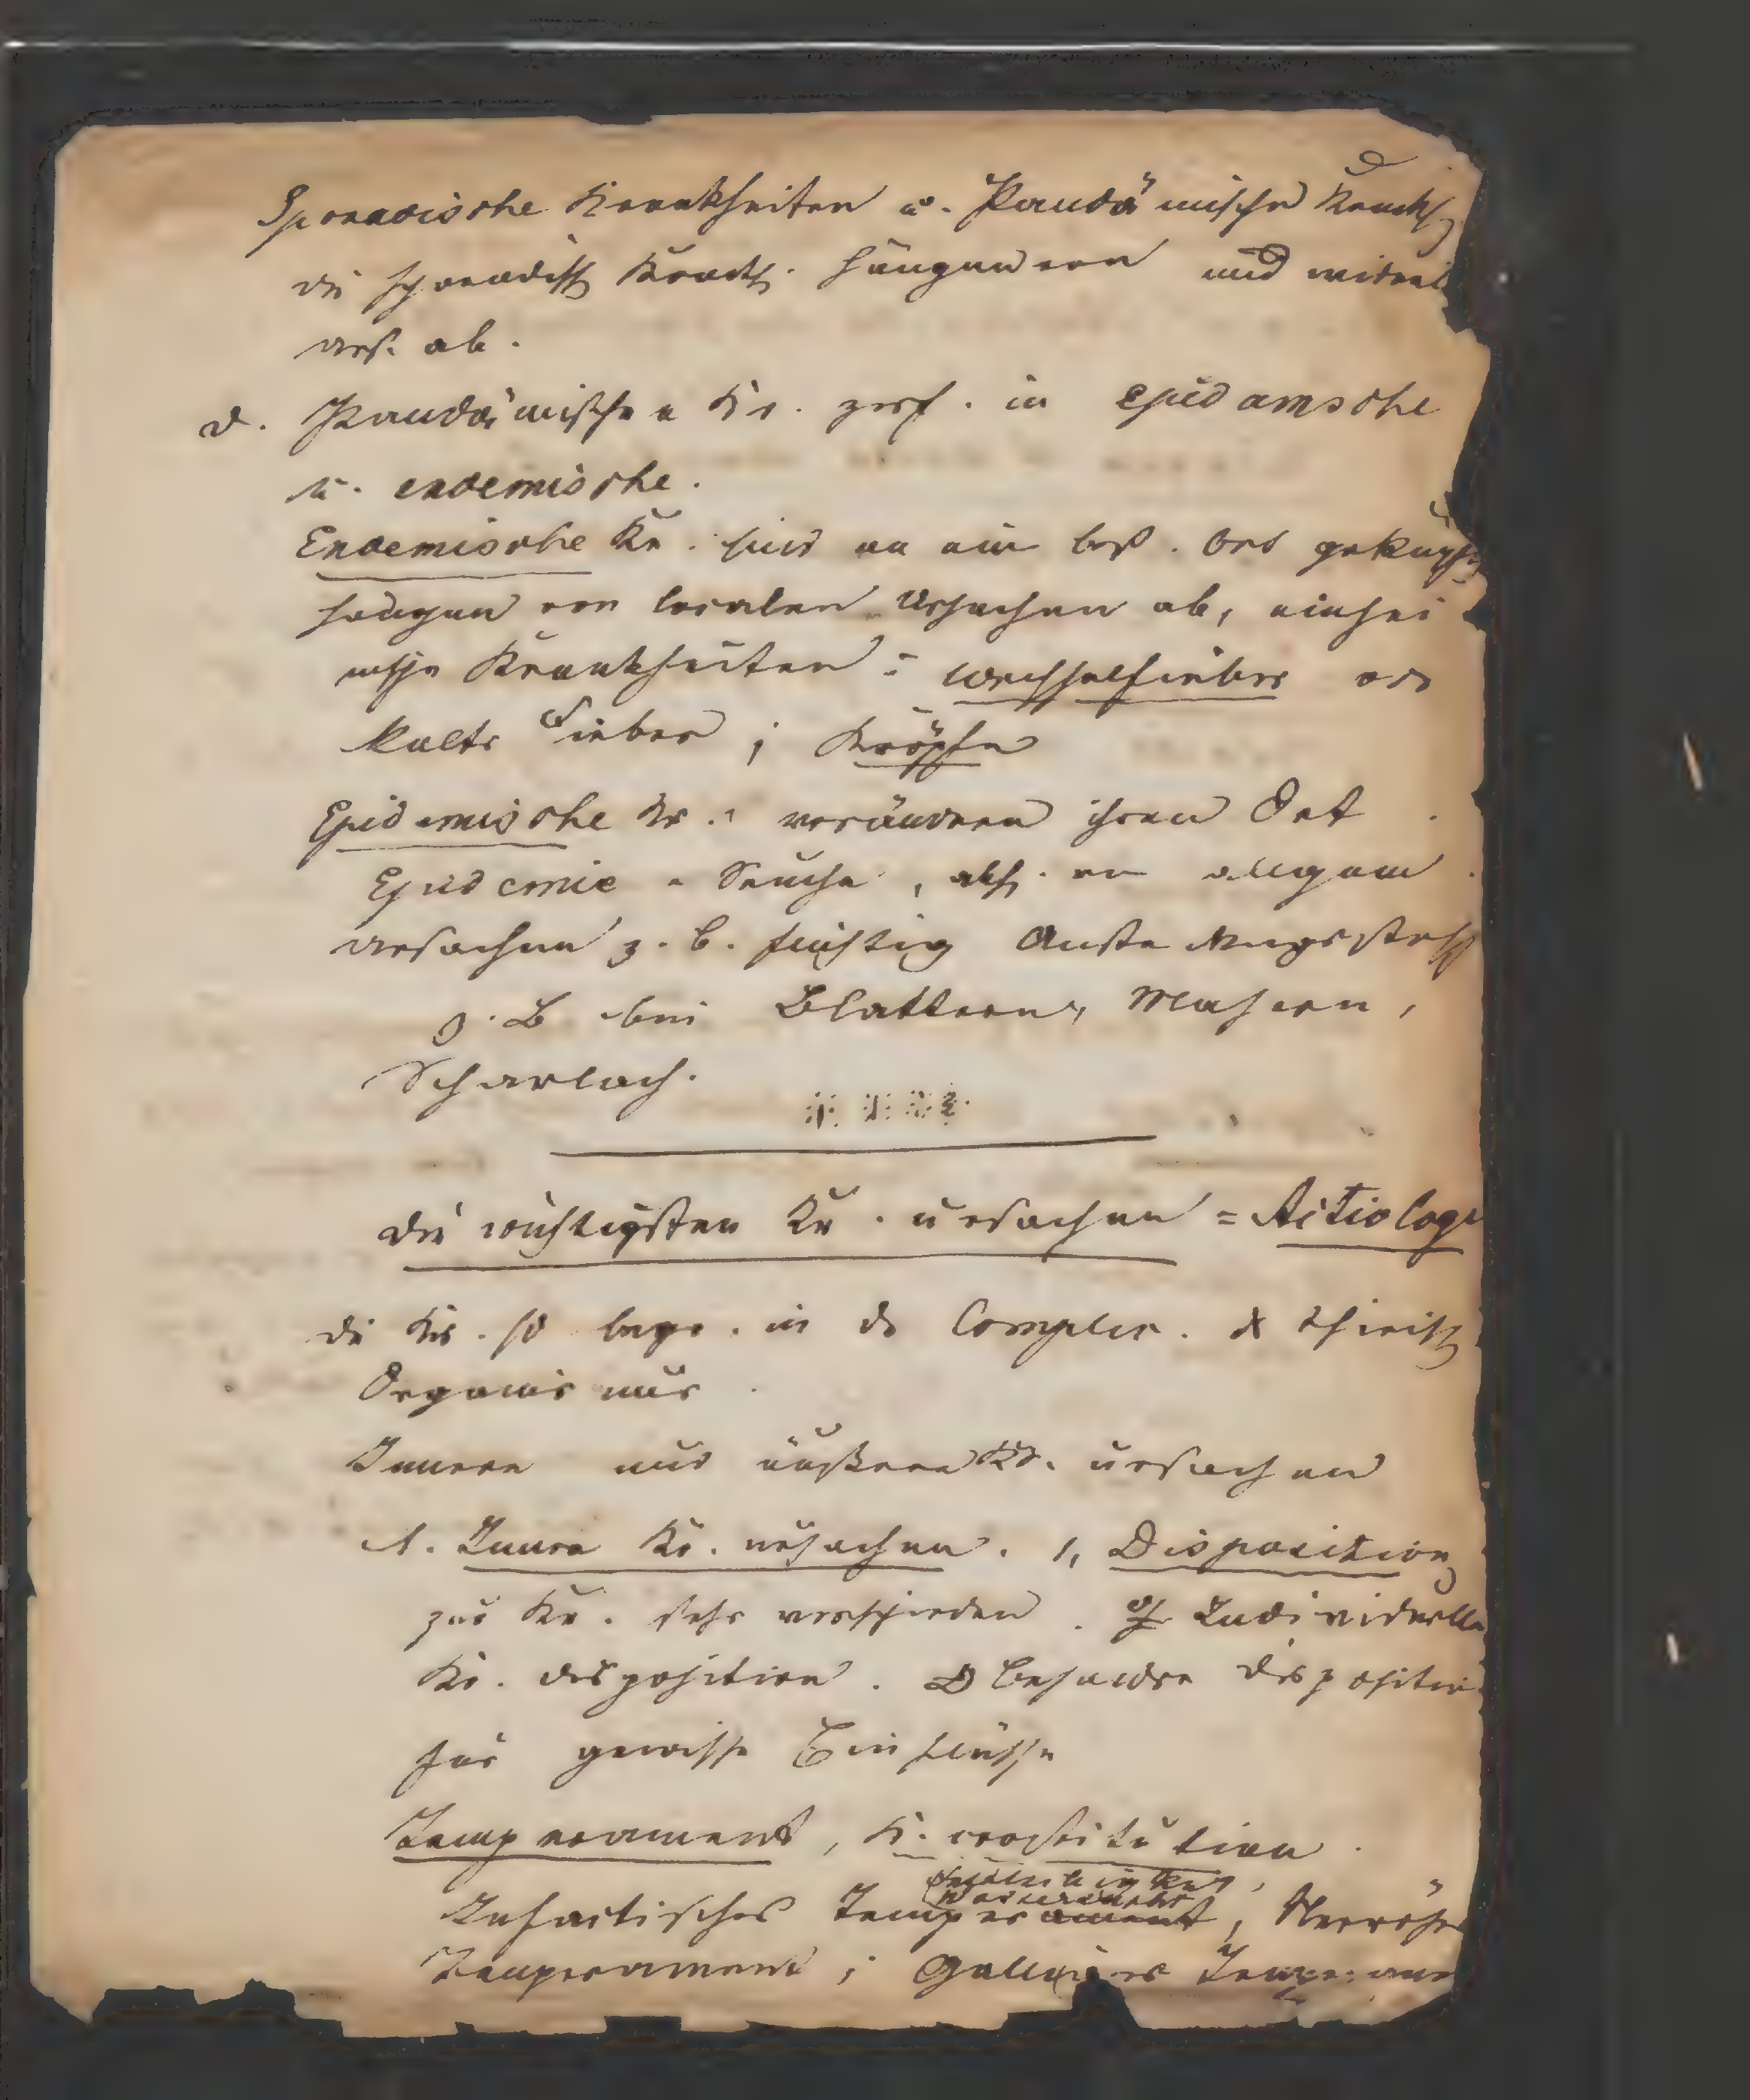 Sporadische Krankheiten u. Pandämische Krankh
die sporadisch Krankh. hängen von und
urs. ab.
d. Pandämische Kr. zerf. in epidamsche
u. endemische.
Endemische Kr. sind an ein best. Ort geknüpft
hängen von localen Ursachen ab, einhei
mische Krankheiten: Wechselfieber od
kalte Fieber; Kröpfe
Epidemische Kr. verändern ihren Ort
Epidemie = Seuche, abh. von allgem
Ursachen z. b. Ansteckungsstoff
z. B bei Blattern, Masern,
Scharlach.
die wichtigsten Kr. ursachen = Aetiolog
die Kr. in d Complic. d thierisch
Organismus
Innere und äußere Kr. ursachen
A. Innere Kr. ursachen. 1, Disposition
zur Kr. sehr verschieden. Individuelle
Kr. disposition. Besondre disposition
für gewisse Einflüsse
Temperament, K. constitution.
Temperament, Nervöses
Temperament; Galliges Temperame